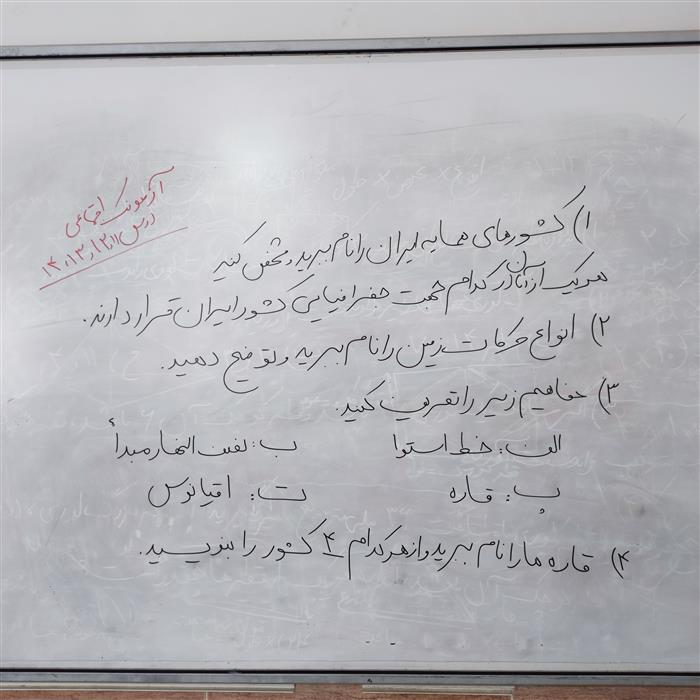 آزمونک اجتماعی
درس ۱۱، ۱۲، ۱۳، ۱۴
۱) کشورهای همسایه ایران را نام ببرید و مشخص کنید
هریک از آنان در کدام جهت جغرافیایی کشور ایران قرار دارند.
۲) انواع حرکات زمین را نام ببرید و توضیح دهید.
۳) مفاهیم زیر را تعریف کنید.
الف: خط استوا ب: نصف النهار مبدأ
پ: قاره ت: اقیانوس
۴) قاره ها را نام ببرید و از هر کدام ۴ کشور را بنویسید.